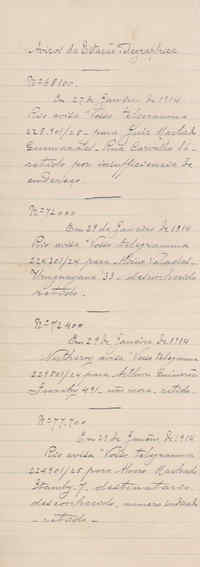 Avisos da Estação Telegraphica
Nº 68100.
Em 27 de Janeiro de 1914
Rio avisa "Vosso telegramma
228.901/25 - para Luiz Machado
Guimarães, Rua Carvalho Sá
retido por insufficiencia de
endereço.
Nº 72000
Em 29 de Janeiro de 1914
Rio avisa "Vosso telegramma
/24 para
Uruguayana 33 - desconhecido
retido.
Nº 72400
Em 29 de Janeiro de 1914
Nictheroy avisa "Vosso telegramma
/24 para Arthur
491 - não mora, retido.
Nº 77.700
Em 31 de Janeiro de 1914
Rio avisa "Vosso telegramma
224901/25 para Alvaro Machado
7, destinatario
desconhecido, numero
- retido -